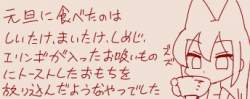 元旦に食べたのは
しいたけ,まいたけ,しめじ,
エリンギが入ったお吸いもの
にトーストしたおもちを
放り込んだよなやつでした
ズズ